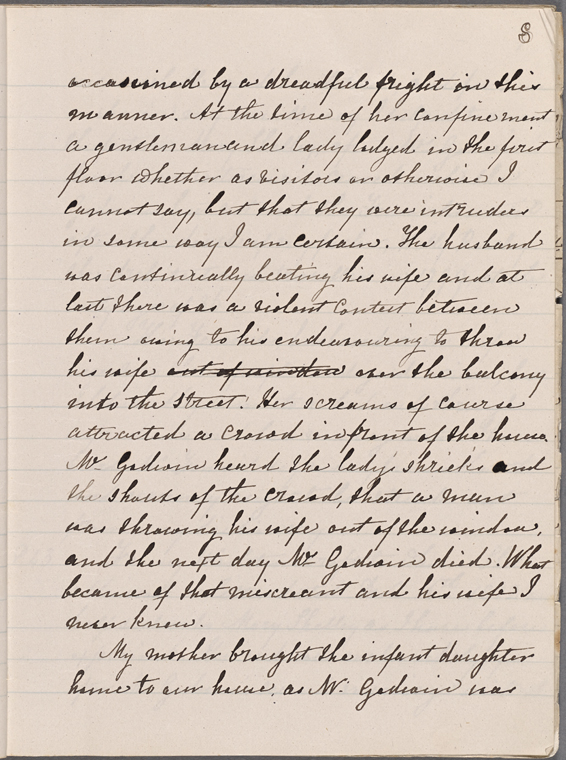 8
occasioned by a dreadful fright in this
manner. At the time of her confinement
a gentleman and lady lodged in the first
floor whether as visitors or otherwise I
cannot say, but that they were intrudees
in some way I am certain. The husband
was continually beating his wife and at
last there was a violent contest between
them owing to his endeavouring to throw
his wife out of window over the balcony
into the street. Her screams of course
attracted a crowd in front of the house.
Mr Godwin heard the lady's shrieks and
the shouts of the crowd, that a man
was throwing his wife out of the window,
and the next day Mr Godwin died. What
became of that miscreant and his wife I
never knew.
My mother brought the infant daughter
home to our house, as Mr Godwin was